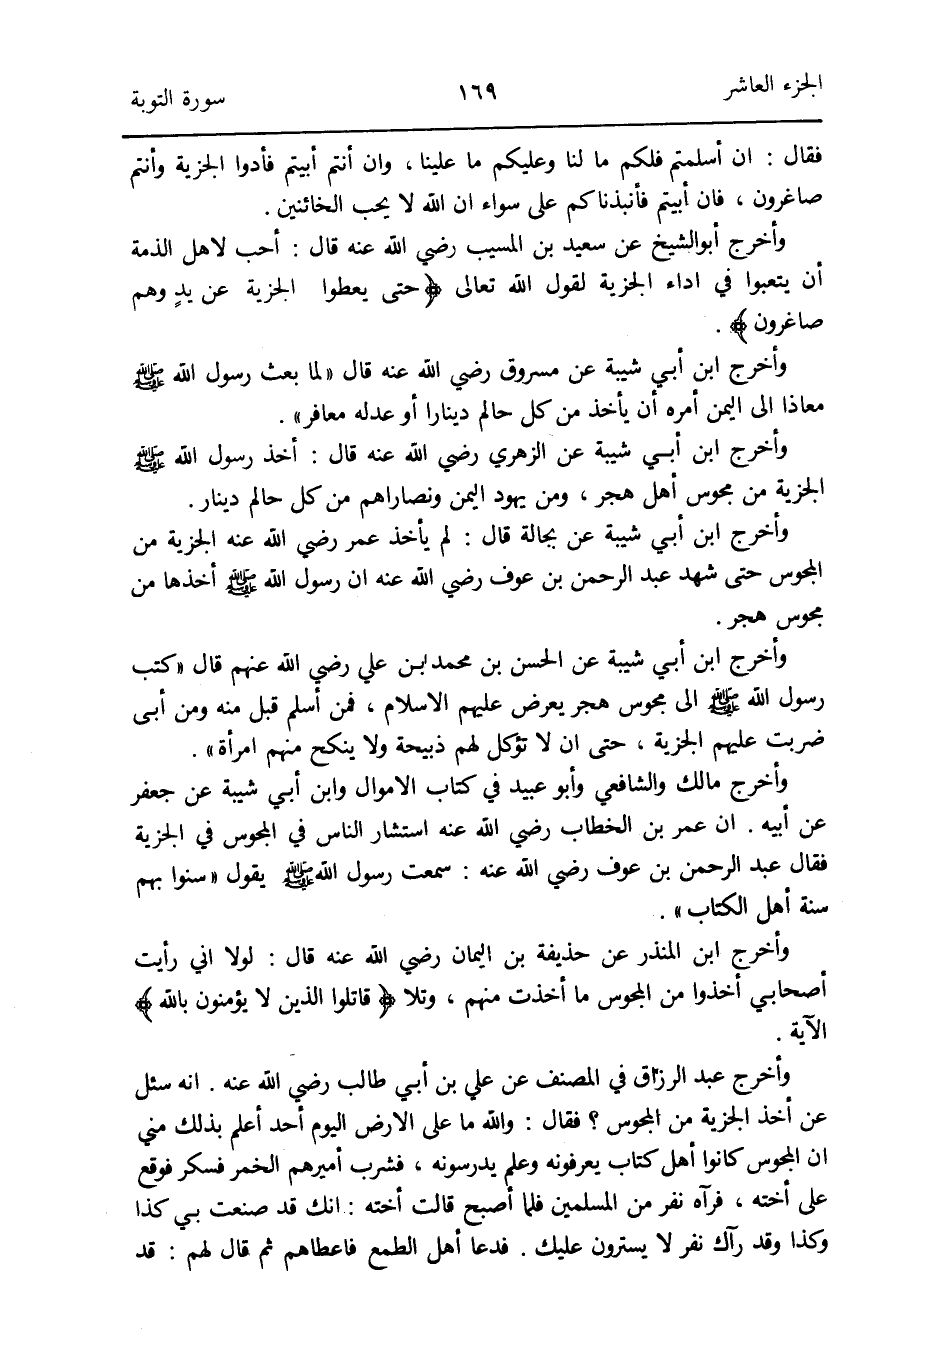 الجزء العاشر
١٦٩
سورة التوبة
فقال : ان أسلمتم فلكم ما لنا وعليكم ما علينا ، وان أنتم أبيتم فأدوا الجزية وأنتم
صاغرون ، فان أبيتم فأنبذناكم على سواء ان الله لا يحب الخائنين .
وأخرج أبوالشيخ عن سعيد بن المسيب رضي الله عنه قال : أحب لاهل الذمة
أن يتعبوا في اداء الجزية لقول الله تعالى ﴿حتى يعطوا الجزية عن يدٍ وهم
صاغرون﴾ .
وأخرج ابن أبي شيبة عن مسروق رضي الله عنه قال «لما بعث رسول الله ﷺ
معاذا الى اليمن أمره أن يأخذ من كل حالم دينارا أو عدله معافر» .
وأخرج ابن أبي شيبة عن الزهري رضي الله عنه قال : أخذ رسول الله ﷺ
الجزية من مجوس أهل هجر ، ومن يهود اليمن ونصاراهم من كل حالم دينار .
وأخرج ابن أبي شيبة عن بجالة قال : لم يأخذ عمر رضي الله عنه الجزية من
المجوس حتى شهد عبد الرحمن بن عوف رضي الله عنه ان رسول الله ﷺ أخذها من
مجوس هجر .
وأخرج ابن أبي شيبة عن الحسن بن محمد بن علي رضي الله عنهم قال «كتب
رسول الله ﷺ الى مجوس هجر يعرض عليهم الاسلام ، فمن أسلم قبل منه ومن أبى
ضربت عليهم الجزية ، حتى ان لا تؤكل لهم ذبيحة ولا ينكح منهم امرأة» .
وأخرج مالك والشافعي وأبو عبيد في كتاب الاموال وابن أبي شيبة عن جعفر
عن أبيه . ان عمر بن الخطاب رضي الله عنه استشار الناس في المجوس في الجزية
فقال عبد الرحمن بن عوف رضي الله عنه : سمعت رسول الله ﷺ يقول «سنوا بهم
سنة أهل الكتاب» .
وأخرج ابن المنذر عن حذيفة بن اليمان رضي الله عنه قال : لولا اني رأيت
أصحابي أخذوا من المجوس ما أخذت منهم ، وتلا ﴿ قاتلوا الذين لا يؤمنون بالله ﴾
الآية .
وأخرج عبد الرزاق في المصنف عن علي بن أبي طالب رضي الله عنه . انه سئل
عن أخذ الجزية من المجوس ؟ فقال : والله ما على الارض اليوم أحد أعلم بذلك مني
ان المجوس كانوا أهل كتاب يعرفونه وعلم يدرسونه ، فشرب أميرهم الخمر فسكر فوقع
على أخته ، فرآه نفر من المسلمين فلما أصبح قالت أخته : انك قد صنعت بي كذا
وكذا وقد رآك نفر لا يسترون عليك . فدعا أهل الطمع فاعطاهم ثم قال لهم : قد